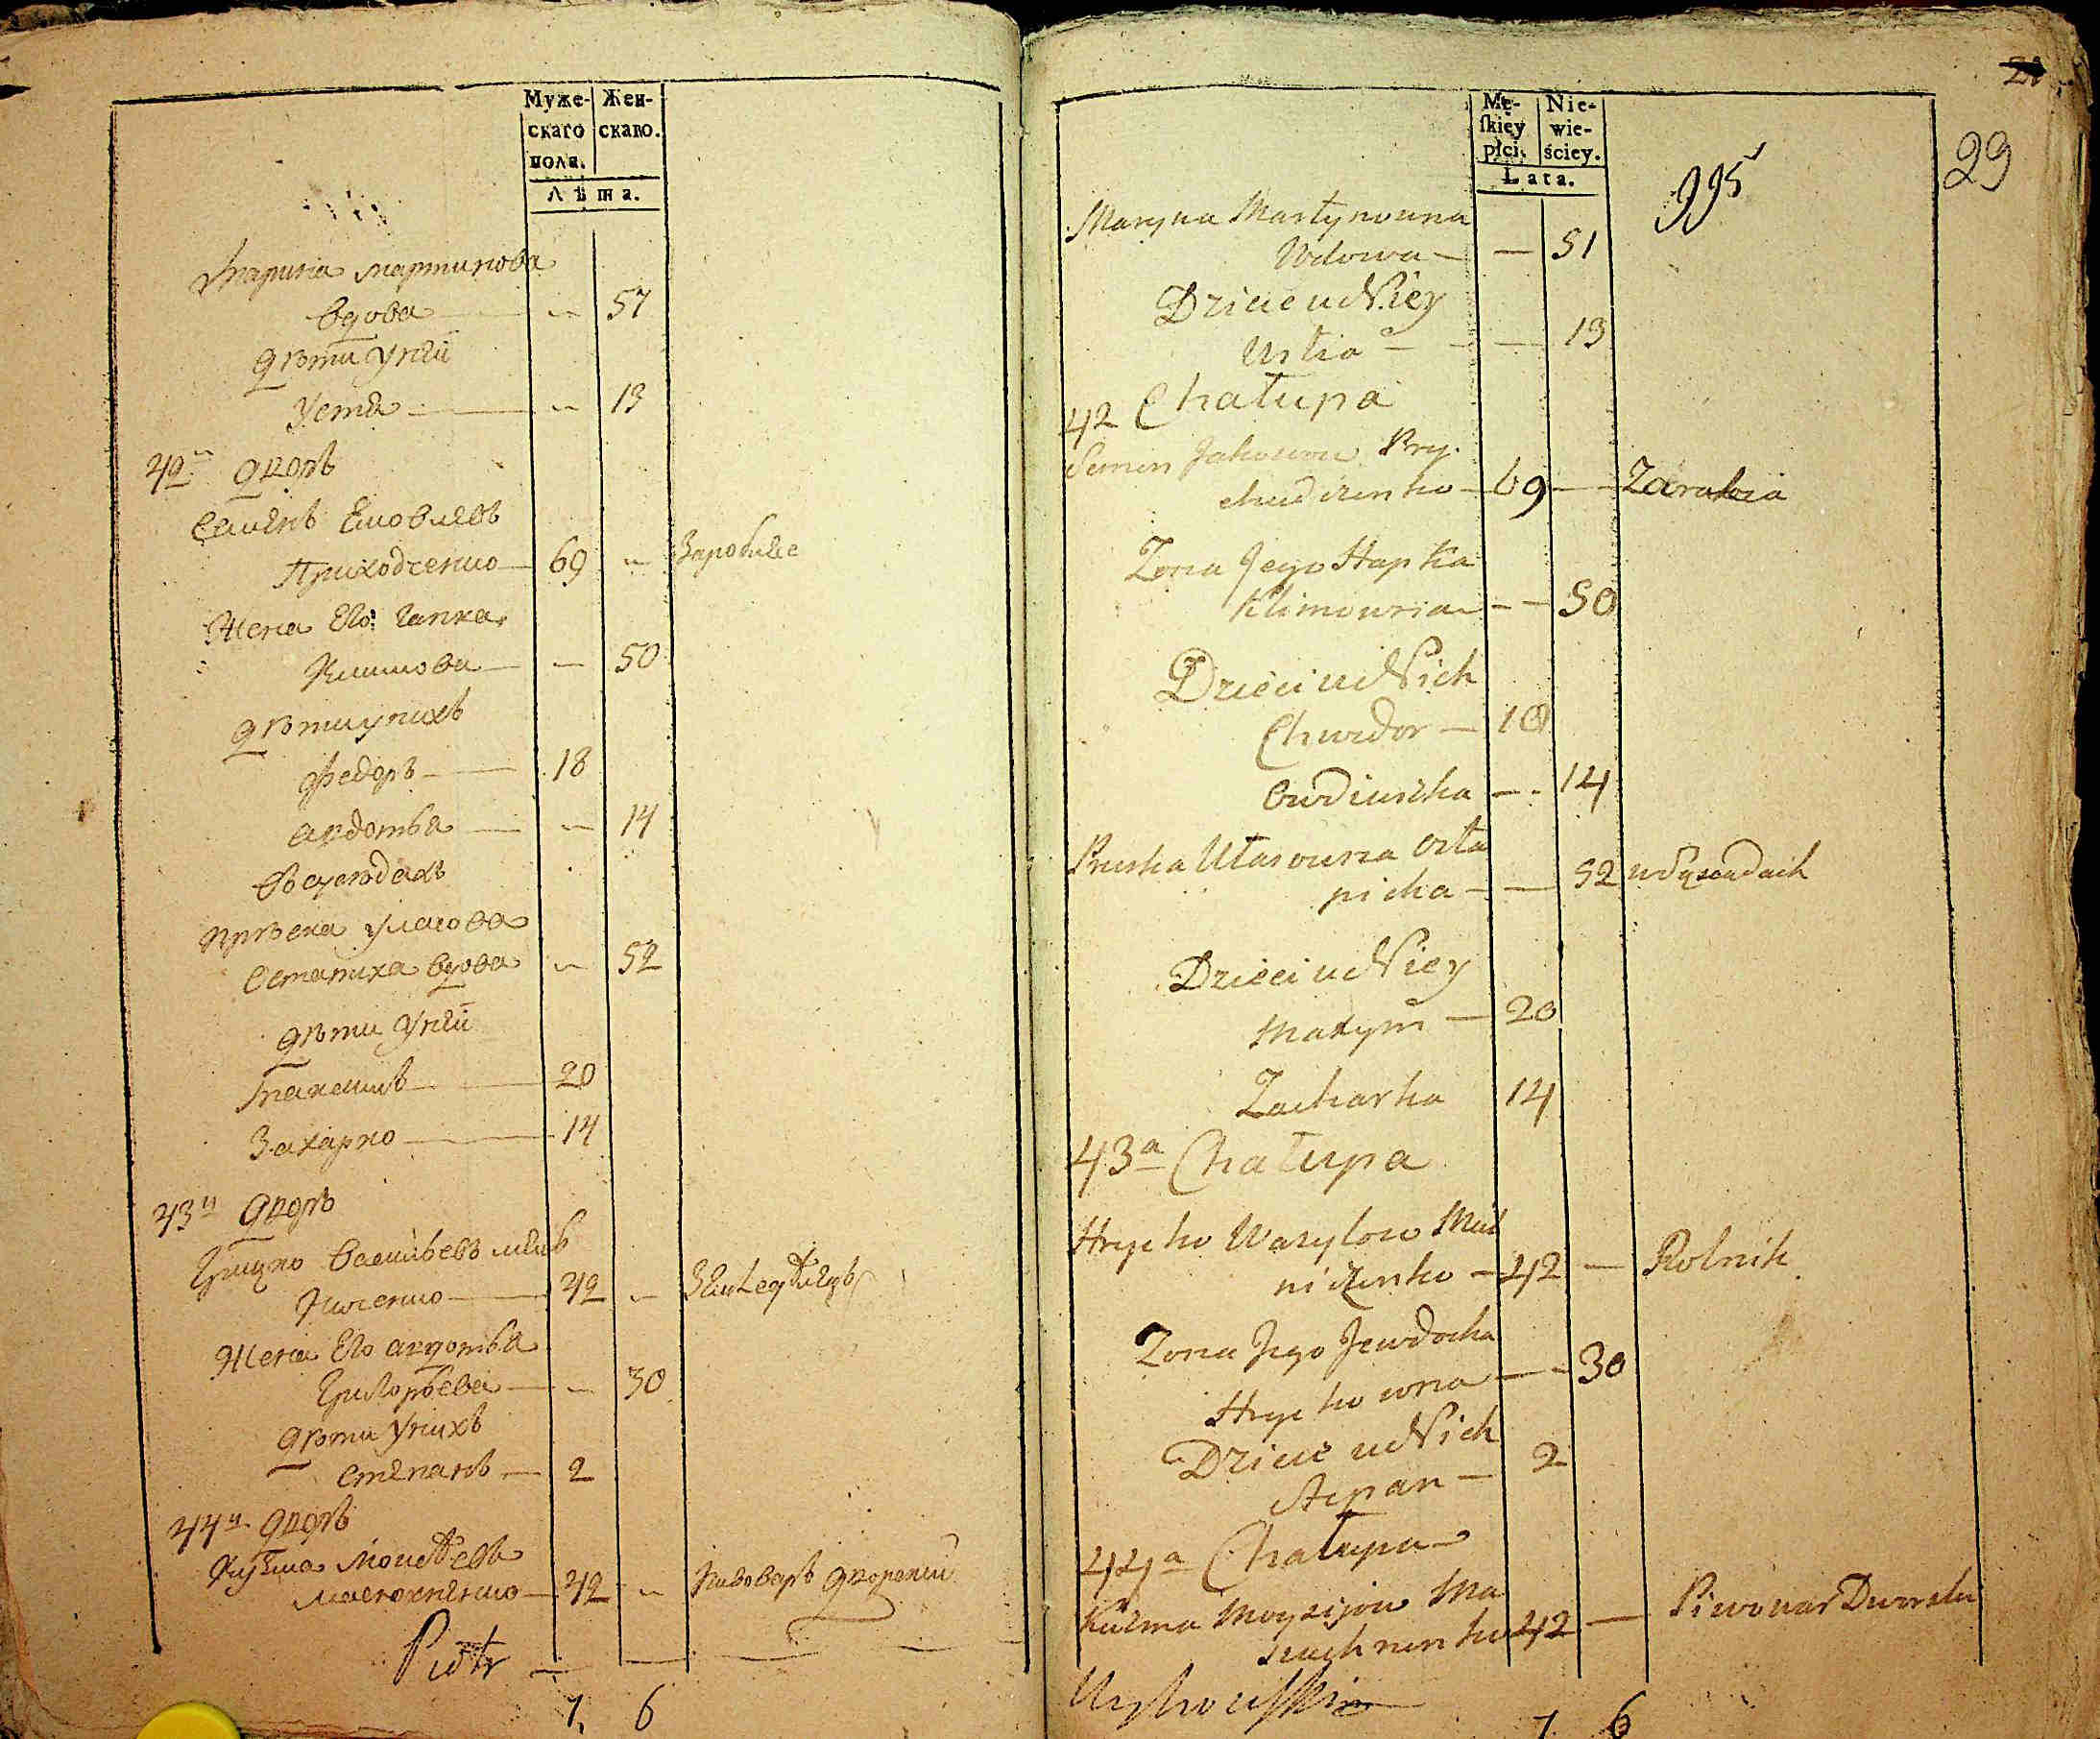 Муже-
скаго
пола.
Жен-
скаго.
Лѣта.
Марина мартинова
вдова — 57
дѣти унѣй
Устя — 13
42й дворъ
Семенъ Яковлевъ
Приходченко — 69
Жена Его гапка
Климова — 50
дѣти унихъ
Федоръ — 18
авдотья — 14
Прѣска Уласова
Остапиха вдова — 52
дѣти Унѣй
Максимъ — 20
Захарко — 14
43й дворъ
Грицко Васильевъ мель
ниченко — 42
Жена Его авдотья
Григорьева — 30
дѣти Унихъ
Степанъ — 2
44й дворъ
Кузма Моисѣевъ
— 42 — пивоваръ дворский
Piotr —
7. 6
Mę-
ſkiey
płci.
Nie-
wie-
ściey.
Lata.
995
29
Maryna Martynowna
Wdowa — — 51
Dziecie u Niey
Ustia — — 13
42 Chałupa
Semen Jakowow Pry-
chudczenko — 69 — Zarabia
Zona Jego Hapka
Klimowna — — 50
Dzieci u Nich
Chwedor — 18
Owdiuszka — — 14
Pruska Ułasowna Osta
picha — — 52 w Sąsiadach
Dzieci u Niey
Maxym — 20
Zacharko 14
43a Chałupa
Hryćko Wasylow Miel
niczenko — 42 — Rolnik
Zona Jego Jewdocha
Hryćkowna — — 30
Dziecie u Nich
Stepan — 2
44a Chałupa
Kuzma Moysijow Ma
42 — Piwowar Dworski
7. 6